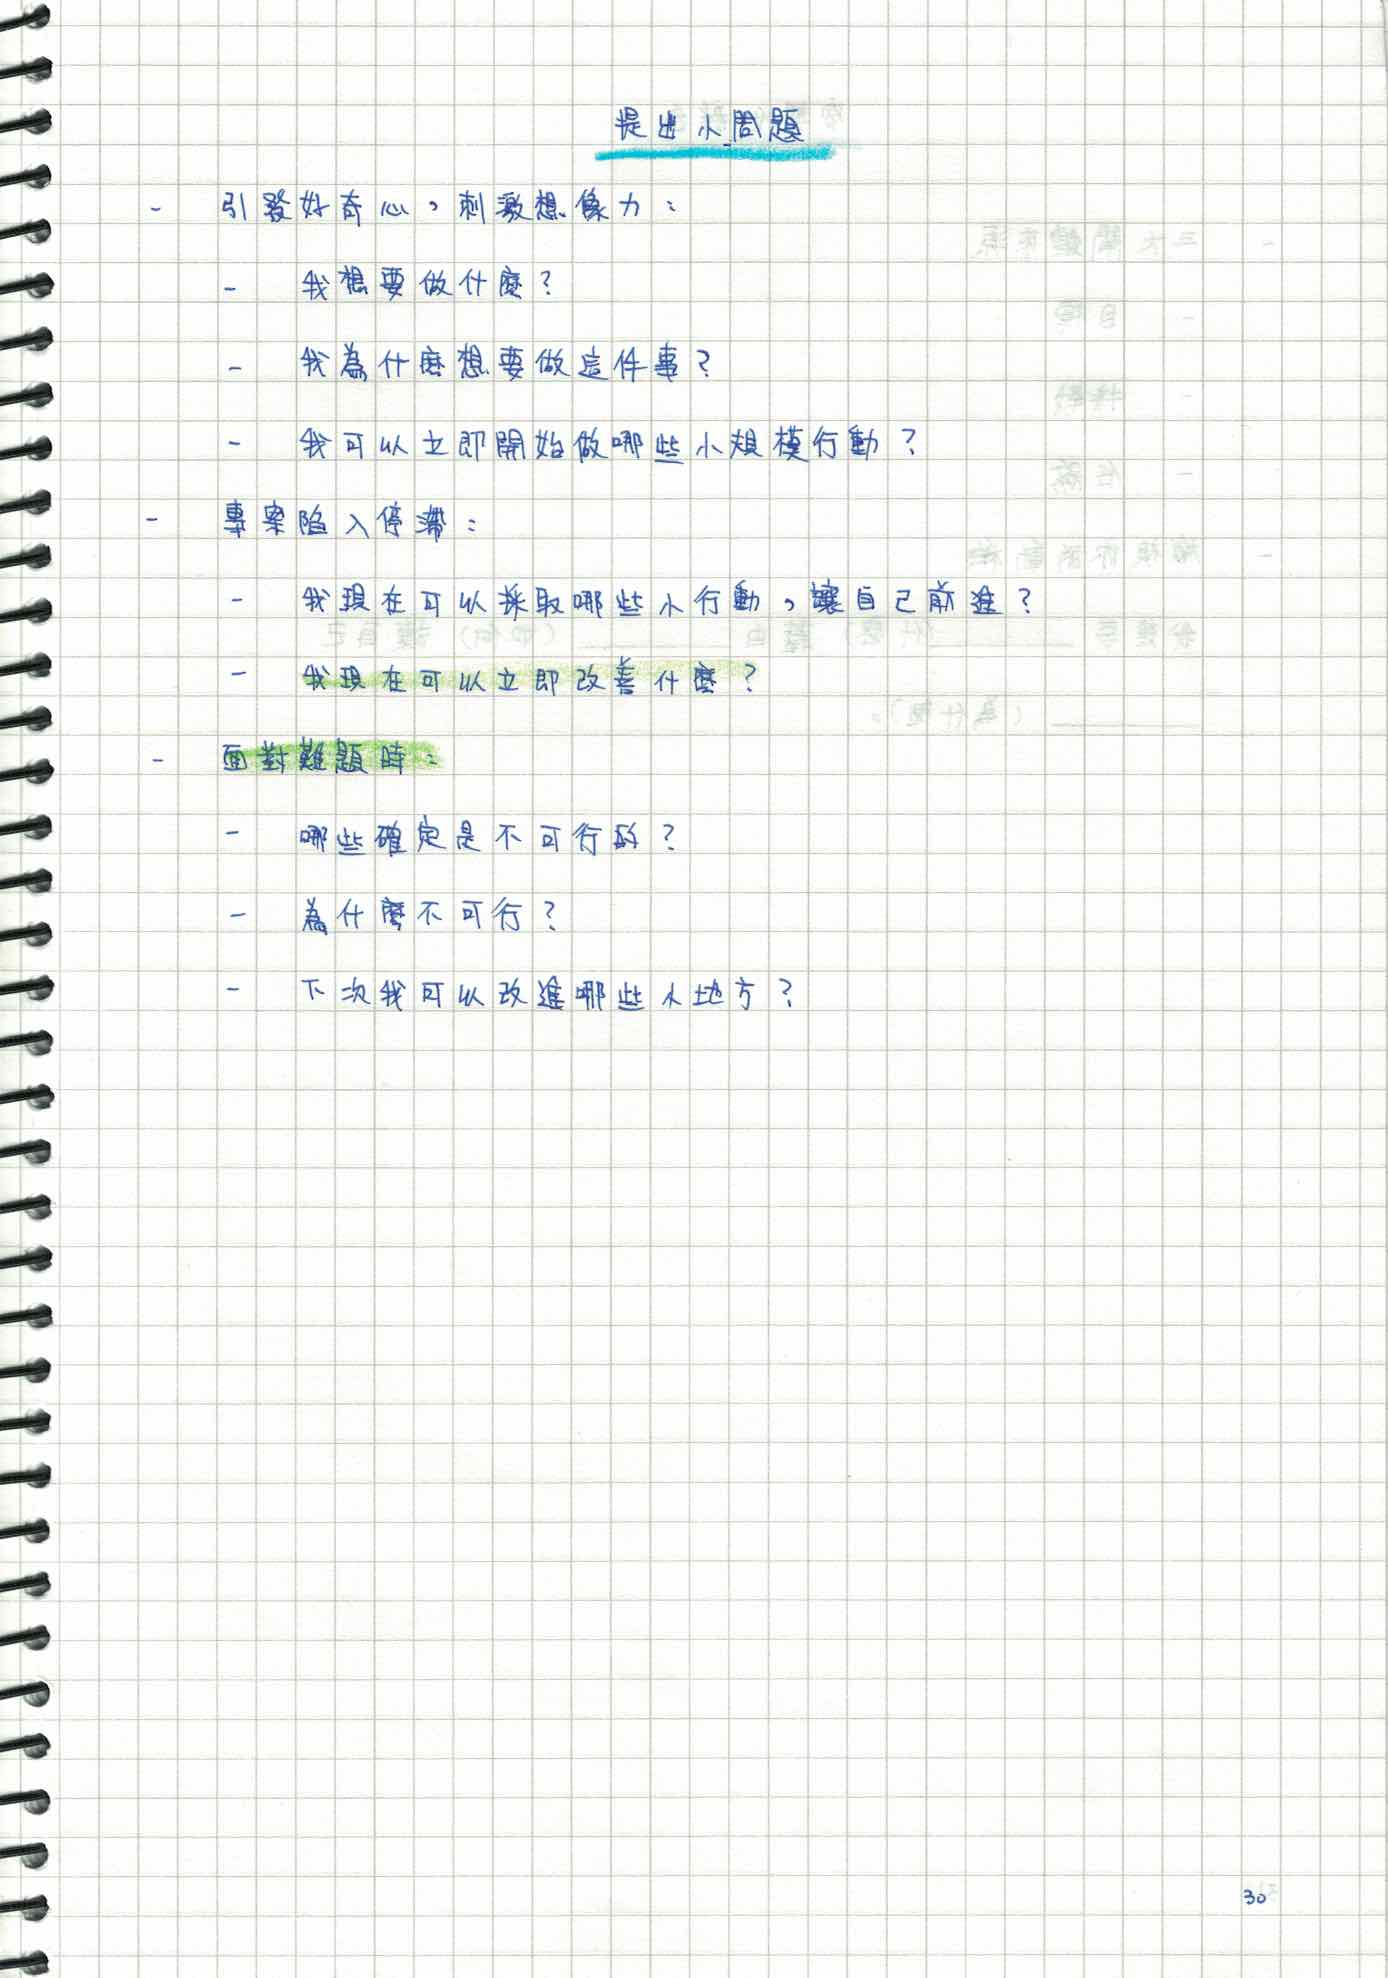 提出小問題
- 引發好奇心，刺激想像力：
- 我想要做什麼？
- 我為什麼想要做這件事？
- 我可以立即開始做哪些小規模行動？
- 專案陷入停滯：
- 我現在可以採取哪些小行動，讓自己前進？
- 我現在可以立即改善什麼？
- 面對難題時：
- 哪些確定是不可行的？
- 為什麼不可行？
- 下次我可以改進哪些小地方？
30